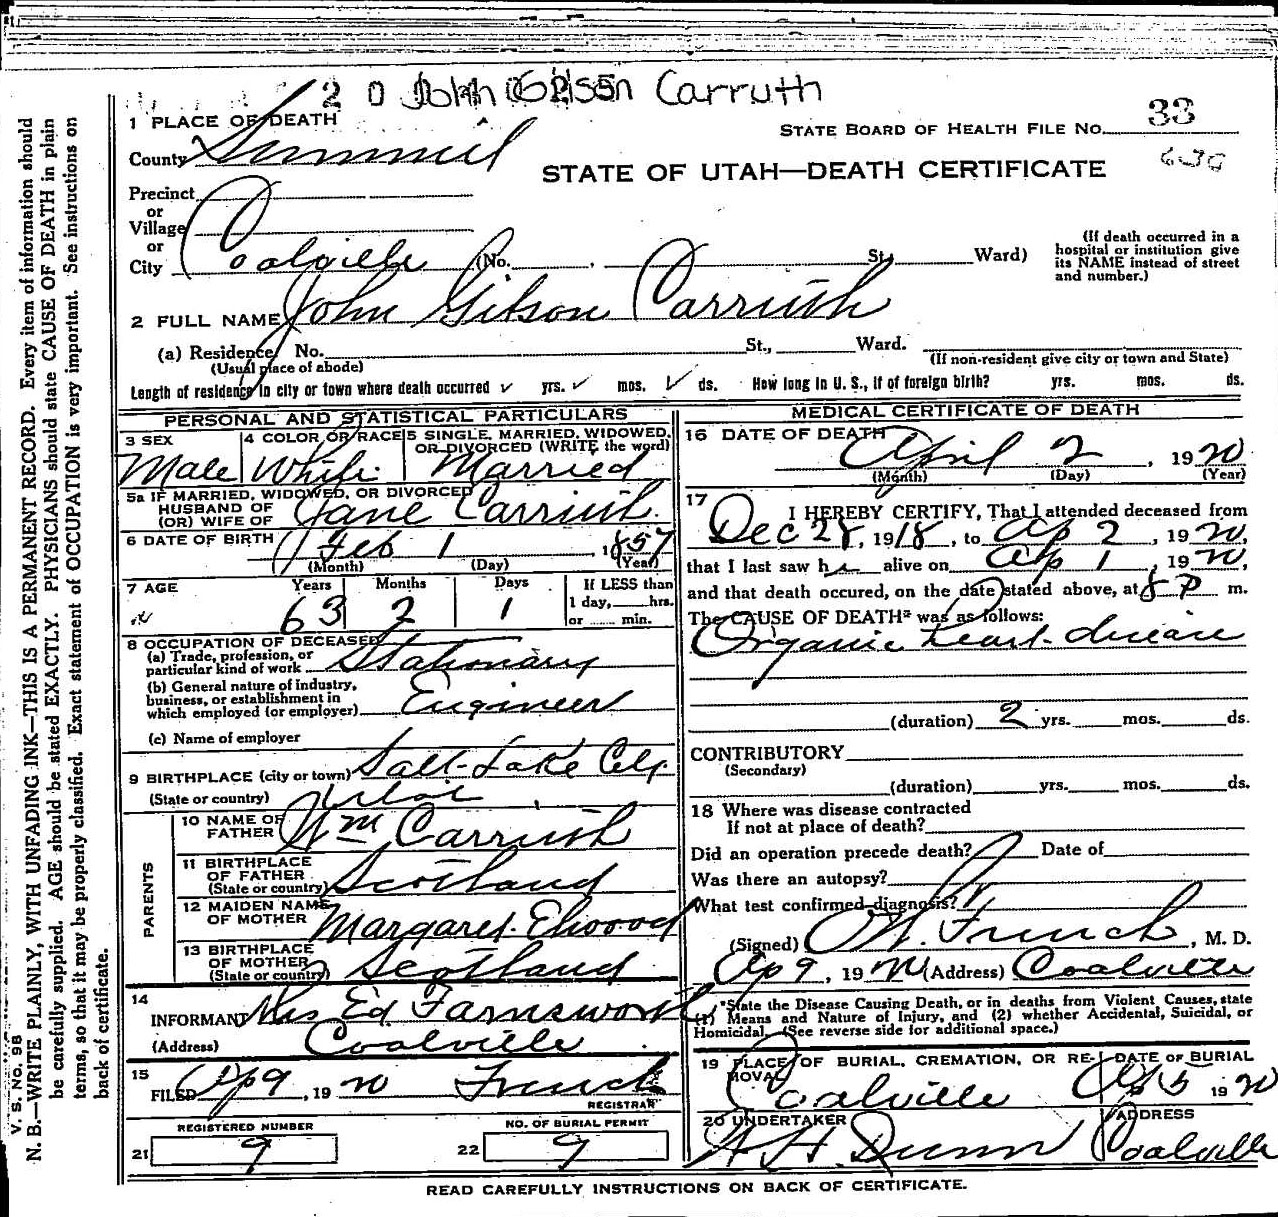 John Gibson Carruth
1 PLACE OF DEATH
STATE BOARD OF HEALTH FILE NO. 33
County Summit
STATE OF UTAH—DEATH CERTIFICATE
Precinct
or
Village
or
City Coalville (No. , St., Ward)
(If death occurred in a
hospital or institution give
its NAME instead of street
and number.)
2 FULL NAME John Gibson Carruth
(a) Residence, No. St., Ward.
(Usual place of abode)
(If non-resident give city or town and State)
Length of residence in city or town where death occurred yrs. mos. ds. How long in U. S., if of foreign birth? yrs. mos. ds.
PERSONAL AND STATISTICAL PARTICULARS
3 SEX
Male
4 COLOR OR RACE
White
5 SINGLE, MARRIED, WIDOWED,
OR DIVORCED (WRITE the word)
Married
5a IF MARRIED, WIDOWED, OR DIVORCED
HUSBAND OF
(OR) WIFE OF Jane Carruth
6 DATE OF BIRTH Feb 1, 1857
(Month) (Day) (Year)
7 AGE Years Months Days If LESS than
1 day, hrs.
or min.
63 2 1
8 OCCUPATION OF DECEASED
(a) Trade, profession, or
particular kind of work Stationary
(b) General nature of industry,
business, or establishment in
which employed (or employer) Engineer
(c) Name of employer
9 BIRTHPLACE (city or town) Salt Lake City
(State or country) Utah
PARENTS
10 NAME OF
FATHER Wm Carruth
11 BIRTHPLACE
OF FATHER
(State or country) Scotland
12 MAIDEN NAME
OF MOTHER Margaret
13 BIRTHPLACE
OF MOTHER
(State or country) Scotland
14
INFORMANT Mrs Ed Farnsworth
(Address) Coalville
15
FILED Ap 9, 1920 French
REGISTRAR
REGISTERED NUMBER
21 9
NO. OF BURIAL PERMIT
22 9
MEDICAL CERTIFICATE OF DEATH
16 DATE OF DEATH
April 2, 1920
(Month) (Day) (Year)
17
I HEREBY CERTIFY, That I attended deceased from
Dec 28, 1918, to Ap 2, 1920,
that I last saw h alive on Ap 1, 1920,
and that death occured, on the date stated above, at 8 P m.
The CAUSE OF DEATH* was as follows:
Organic heart disease
(duration) 2 yrs. mos. ds.
CONTRIBUTORY
(Secondary)
(duration) yrs. mos. ds.
18 Where was disease contracted
If not at place of death?
Did an operation precede death? Date of
Was there an autopsy?
What test confirmed diagnosis?
(Signed) French, M. D.
Ap 9, 1920 (Address) Coalville
*State the Disease Causing Death, or in deaths from Violent Causes, state
(1) Means and Nature of Injury, and (2) whether Accidental, Suicidal, or
Homicidal. (See reverse side for additional space.)
19 PLACE OF BURIAL, CREMATION, OR RE-
MOVAL
Coalville
DATE OF BURIAL
Ap 5 1920
20 UNDERTAKER
A H. Dunn
ADDRESS
Coalville
READ CAREFULLY INSTRUCTIONS ON BACK OF CERTIFICATE.
V. S. No. 98
N. B.—WRITE PLAINLY, WITH UNFADING INK—THIS IS A PERMANENT RECORD. Every item of information should
be carefully supplied. AGE should be stated EXACTLY. PHYSICIANS should state CAUSE OF DEATH in plain
terms, so that it may be properly classified. Exact statement of OCCUPATION is very important. See instructions on
back of certificate.